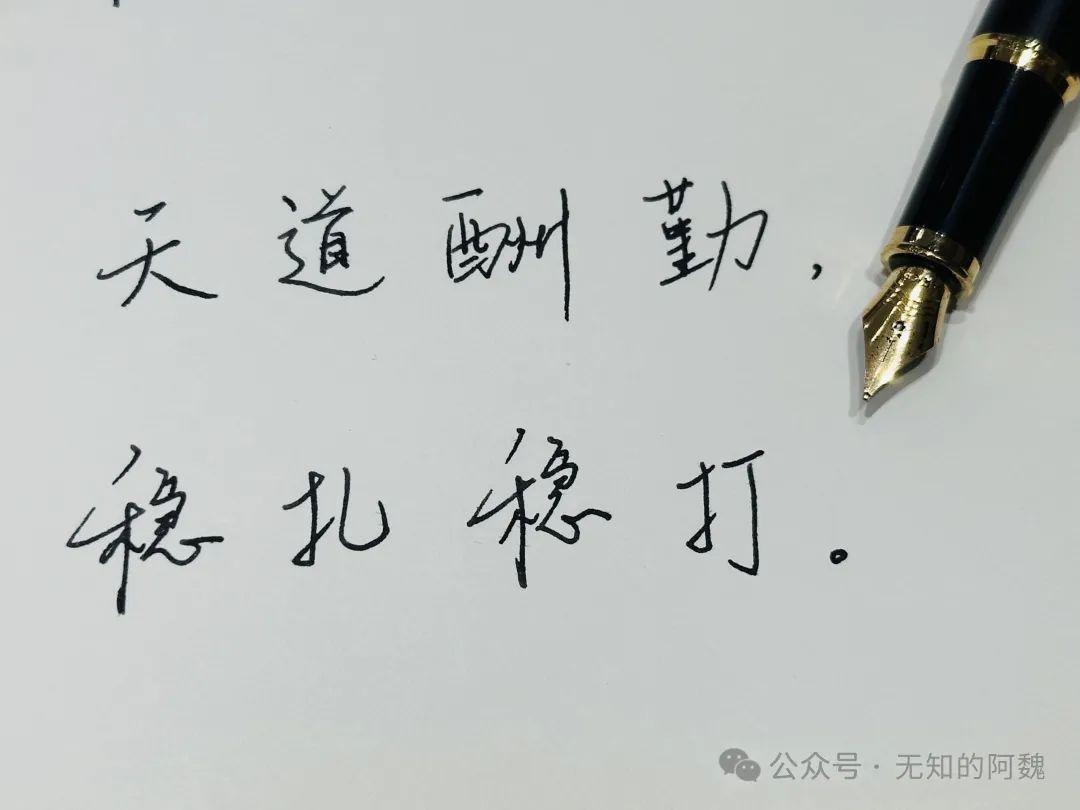 天道酬勤，
稳扎稳打。
公众号·无知的阿魏